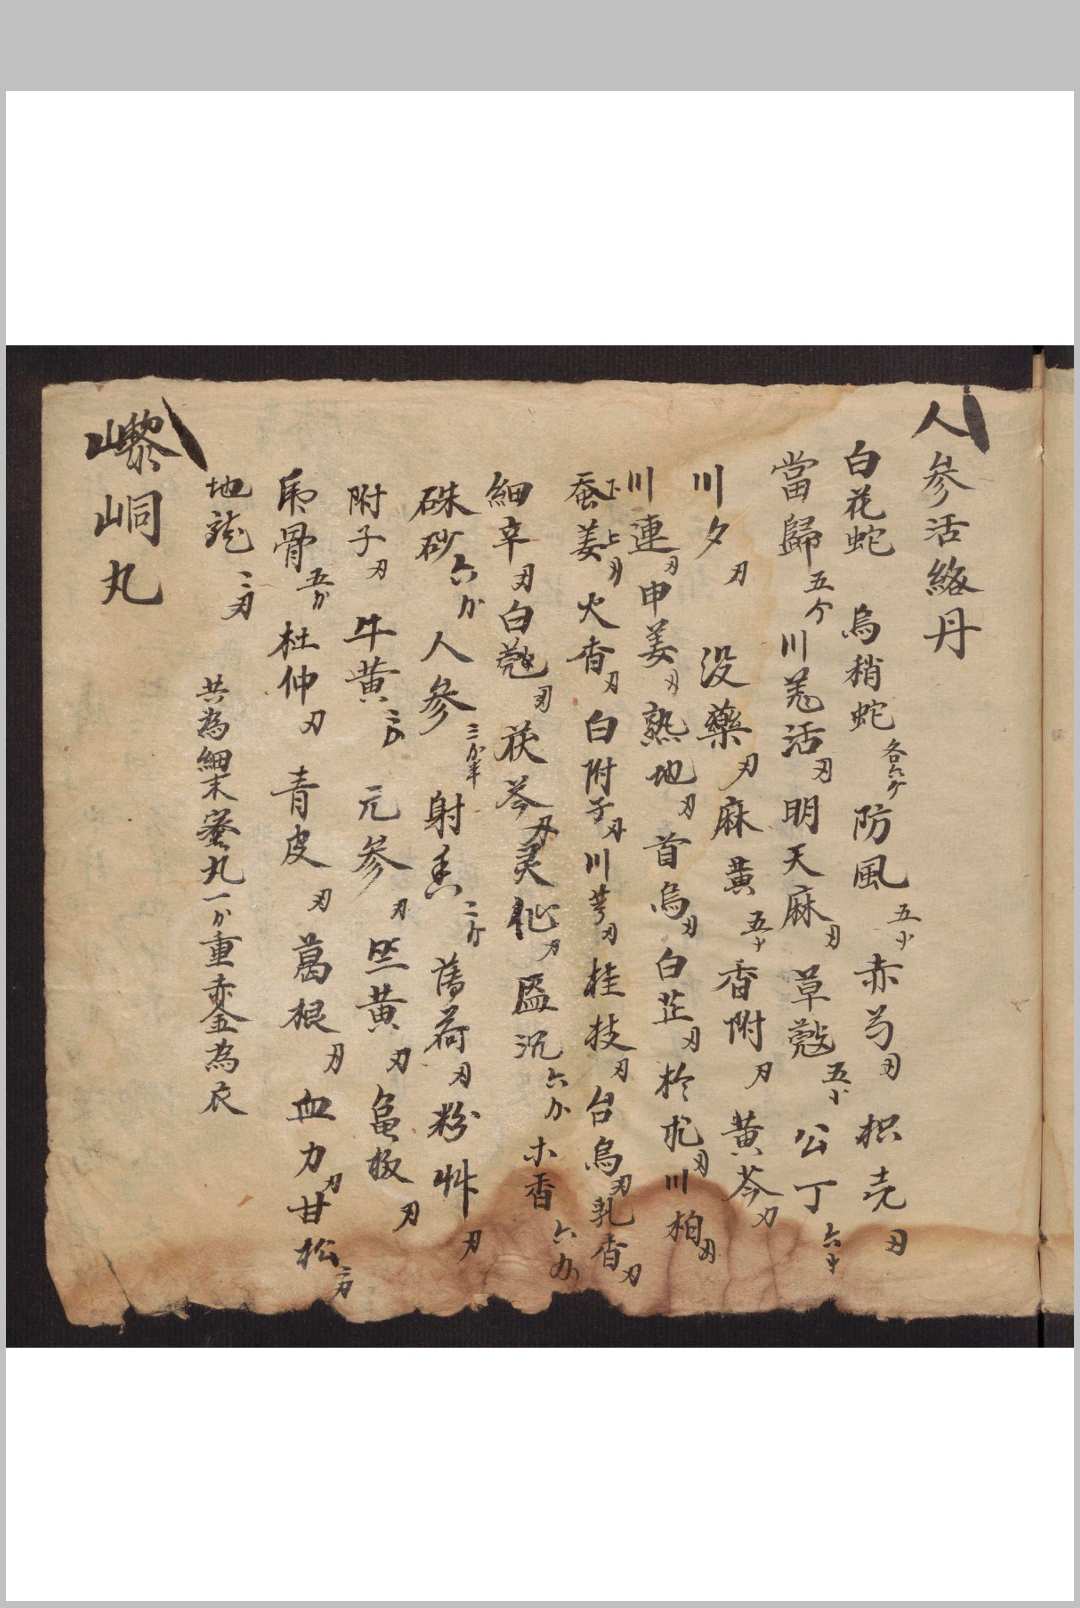 人參活絡丹
白花蛇 烏稍蛇各六个 防風五卜 赤芍刃 枳壳刃
當歸五个 川羗活刃 明天麻刃 草蔻五卜 公丁六卜
川夕刃 没藥刃 麻黄五卜 香附刃 黄芩刃
川連刃 申姜刃 熟地刃 首烏刃 白芷刃 於朮刃 川柏刃
蚕姜刃 火香刃 白附子刃 川芎刃 桂技刃 台烏刃 乳香刃
細辛刃 白蔻刃 茯苓刃 灵仙刃 沉六分 木香六分
硃砂六分 人參三分半 射香二个 薄荷刃 粉艸刃
附子刃 牛黄 元參刃 黄刃 龜板刃
虎骨五分 杜仲刃 青皮刃 葛根刃 血力刃 甘松二刃
地龍二刃 共為細末蜜丸一分重赤金為衣
㠟峒丸